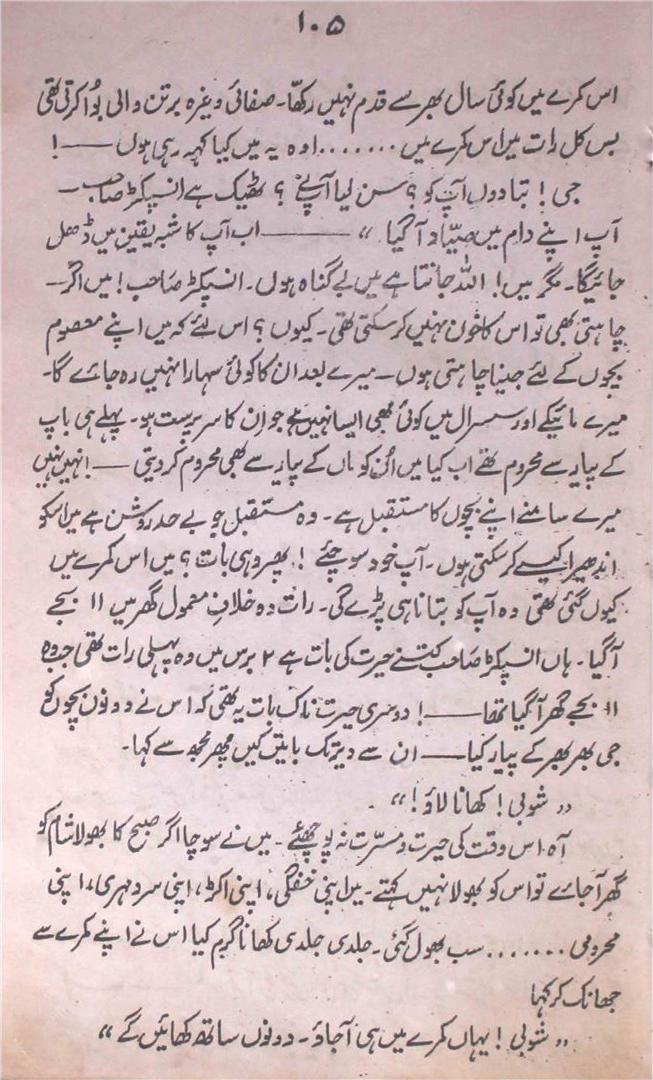 ۱۰۵
اس کمرے میں کوئی سال بھر سے قدم نہیں رکھتا۔ صفائی وغیرہ برتن والی بُوا کرتی تھی
بس کل رات میں اس کمرے میں ....... اوہ یہ میں کیا کہہ رہی ہوں —— !
جی! بتا دوں آپ کو؟ سن لیا آپ نے؟ ٹھیک ہے انسپکٹر صاحب —
آپ اپنے دام میں صیّاد آگیا " —— اب آپ کا شبہ یقین میں ڈھل
جائیگا۔ مگر میں! اللہ جانتا ہے میں بے گناہ ہوں۔ انسپکٹر صاحب! میں اگر —
چاہتی بھی تو اس کا خون نہیں کر سکتی تھی۔ کیوں؟ اس لئے کہ میں اپنے معصوم
بچوں کے لئے جینا چاہتی ہوں۔ میرے بعد ان کا کوئی سہارا نہیں رہ جائے گا۔
میرے مائیکے اور سسرال میں کوئی بھی ایسا نہیں ہے جو ان کا سرپرست ہو۔ پہلے ہی باپ
کے پیار سے محروم تھے اب کیا میں اُن کو ماں کے پیار سے بھی محروم کر دیتی —! نہیں نہیں
میرے سامنے اپنے بچوں کا مستقبل ہے۔ وہ مستقبل جو بے حد روشن ہے میں اسکو
اندھیرا کیسے کر سکتی ہوں۔ آپ خود سوچئے! پھر وہی بات؟ میں اس کمرے میں
کیوں گئی تھی وہ آپ کو بتانا ہی پڑے گی۔ رات وہ خلافِ معمول گھر میں ۱۱ بجے
آگیا۔ ہاں انسپکٹر صاحب کتنے حیرت کی بات ہے ۲ برس میں وہ پہلی رات تھی جب وہ
۱۱ بجے گھر آگیا تھا ——! دوسری حیرت ناک بات یہ تھی کہ اس نے دونوں بچوں کو
جی بھر بھر کے پیار کیا —— ان سے دیر تک باتیں کیں پھر مجھ سے کہا۔
" شوبی! کھانا لاؤ!" ۔
آہ اس وقت کی حیرت و مسرّت نہ پوچھئے۔ میں نے سوچا اگر صبح کا بھولا شام کو
گھر آجائے تو اس کو بھولا نہیں کہتے۔ میں اپنی خفگی، اپنی اکڑ، اپنی سرد مہری، اپنی
محرومی ....... سب بھول گئی۔ جلدی جلدی کھانا گرم کیا اس نے اپنے کمرے سے
جھانک کر کہا
" شوبی! یہاں کمرے میں ہی آجاؤ۔ دونوں ساتھ کھائیں گے "